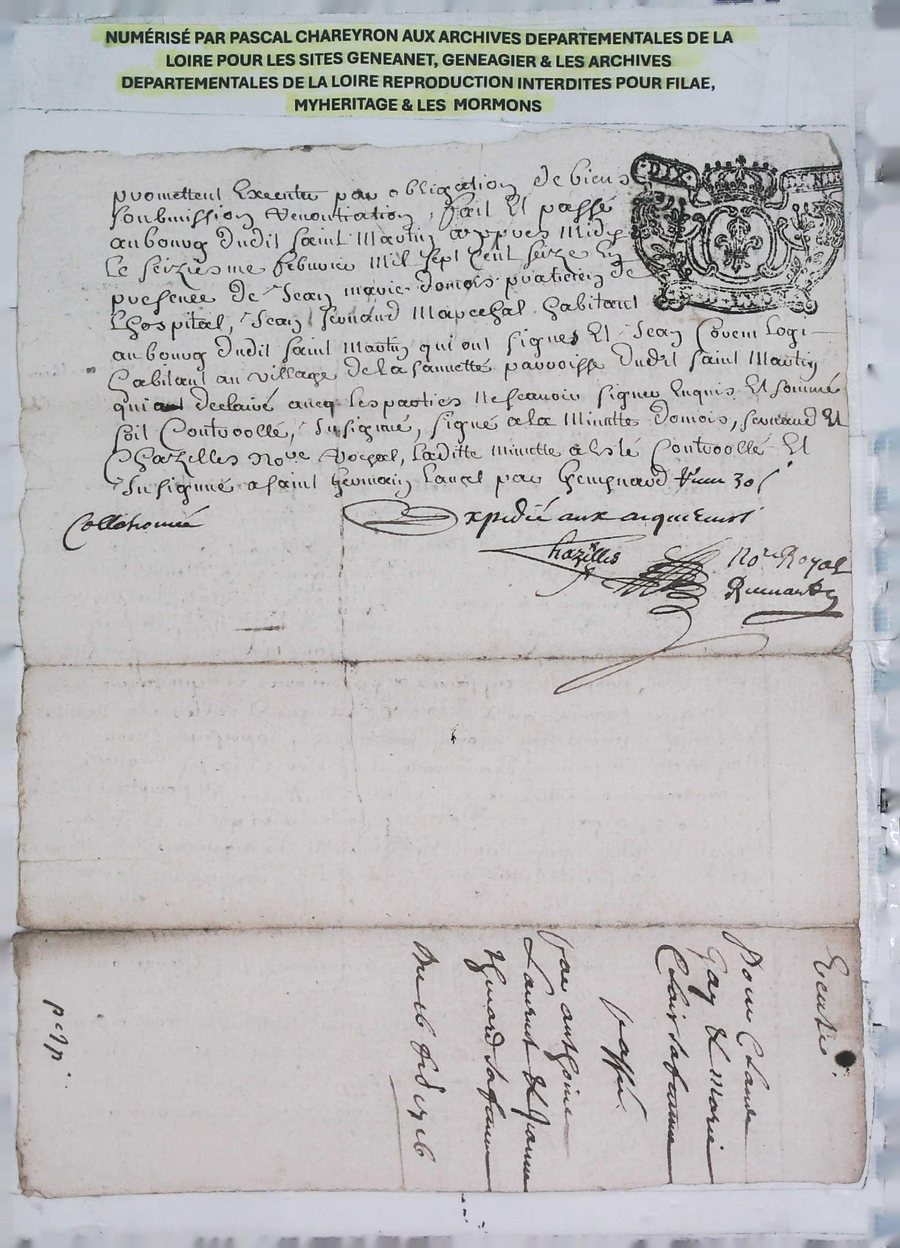 NUMÉRISÉ PAR PASCAL CHAREYRON AUX ARCHIVES DEPARTEMENTALES DE LA
LOIRE POUR LES SITES GENEANET, GENEAGIER & LES ARCHIVES
DEPARTEMENTALES DE LA LOIRE REPRODUCTION INTERDITES POUR FILAE,
MYHERITAGE & LES MORMONS
DIX
promettent Executer par obligation de biens
soubmission Renontiation, fait Et passé
au bourg dudit saint Martin appres midy
Le seiziesme febvrier mil sept cent seize En
presence de Jean marie domois praticien de
Lhospital, Jean fernaud Marechal habitant
au bourg dudit saint Martin qui ont signes Et Jean
habitant au village de la parroisse dudit saint Martin
qui a declaré avecq les parties ne scavoir signer Enquis Et sommé
soit Controollé, Insigmié, signé a la Minutte domois, fernaud Et
Chazilles no.re Royal, laditte minutte a Esté Controollé Et
Insigmié a saint Germain Laval par 30 s
Collationné
Expedié aux acquereurs
Chazilles
No.re Royal
Vente
Pour Claude
Gay & marie
Clair sa femme
passé
par anthoine
Laurent & Jeanne
sa femme
Du 16 1716